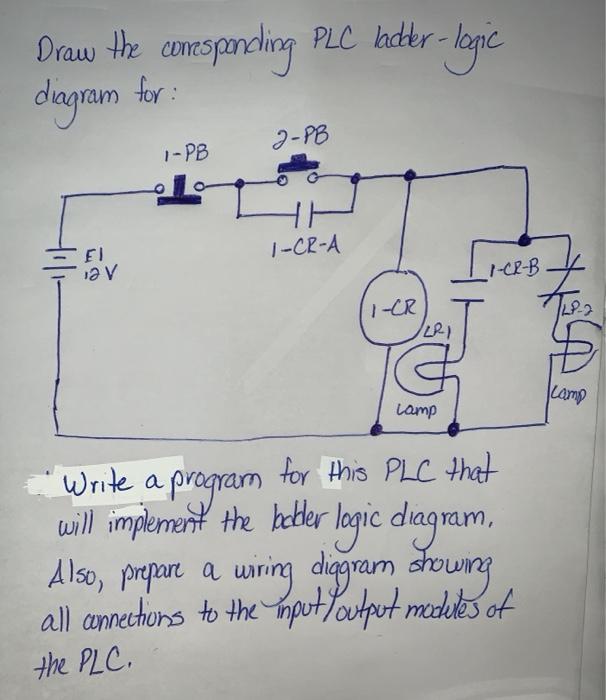 Draw the corresponding PLC ladder-logic
diagram for:
2-PB
1-PB
1-CR-A
E1
12 V
1-CR-B
1-CR
LP1
LP-2
Lamp
Lamp
Write a program for this PLC that
will implement the ladder logic diagram.
Also, prepare a wiring diagram showing
all connections to the input/output modules of
the PLC.